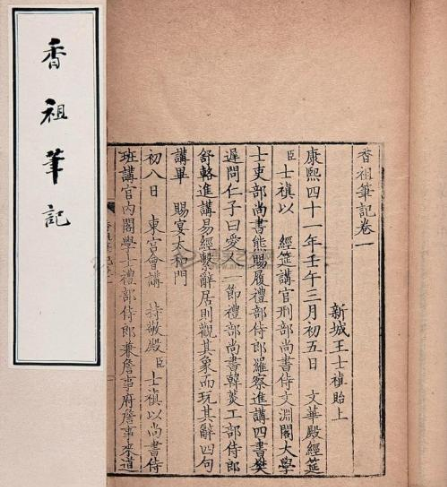 香祖筆記
香祖筆記卷一
新城王士禛貽上
康熙四十一年壬午三月初五日　文華殿經筵
臣士禛以　經筵講官刑部尚書侍文淵閣大學
士吏部尚書熊賜履禮部侍郎羅察進講四書樊
遲問仁子曰愛人一節禮部尚書韓菼工部侍郎
舒輅進講易經繫辭居則觀其象而玩其辭四句
講畢　賜宴太和門
初八日　東宮會講　持敬殿臣士禛以尚書侍
班講官內閣學士禮部侍郎兼詹事府詹事來道